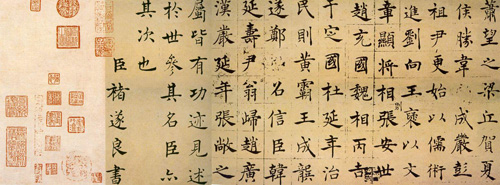 蕭望之梁丘賀夏
侯勝韋成嚴彭
祖尹更始以儒術
進劉向王褒以文
章顯將相則張安世
趙充國魏相丙吉
于定國杜延年治
民則黃霸王成龔
遂鄭召信臣韓
延壽尹翁歸趙廣
漢嚴延年張敞之
屬皆有功迹見述
於世參其名臣亦
其次也
臣褚遂良書